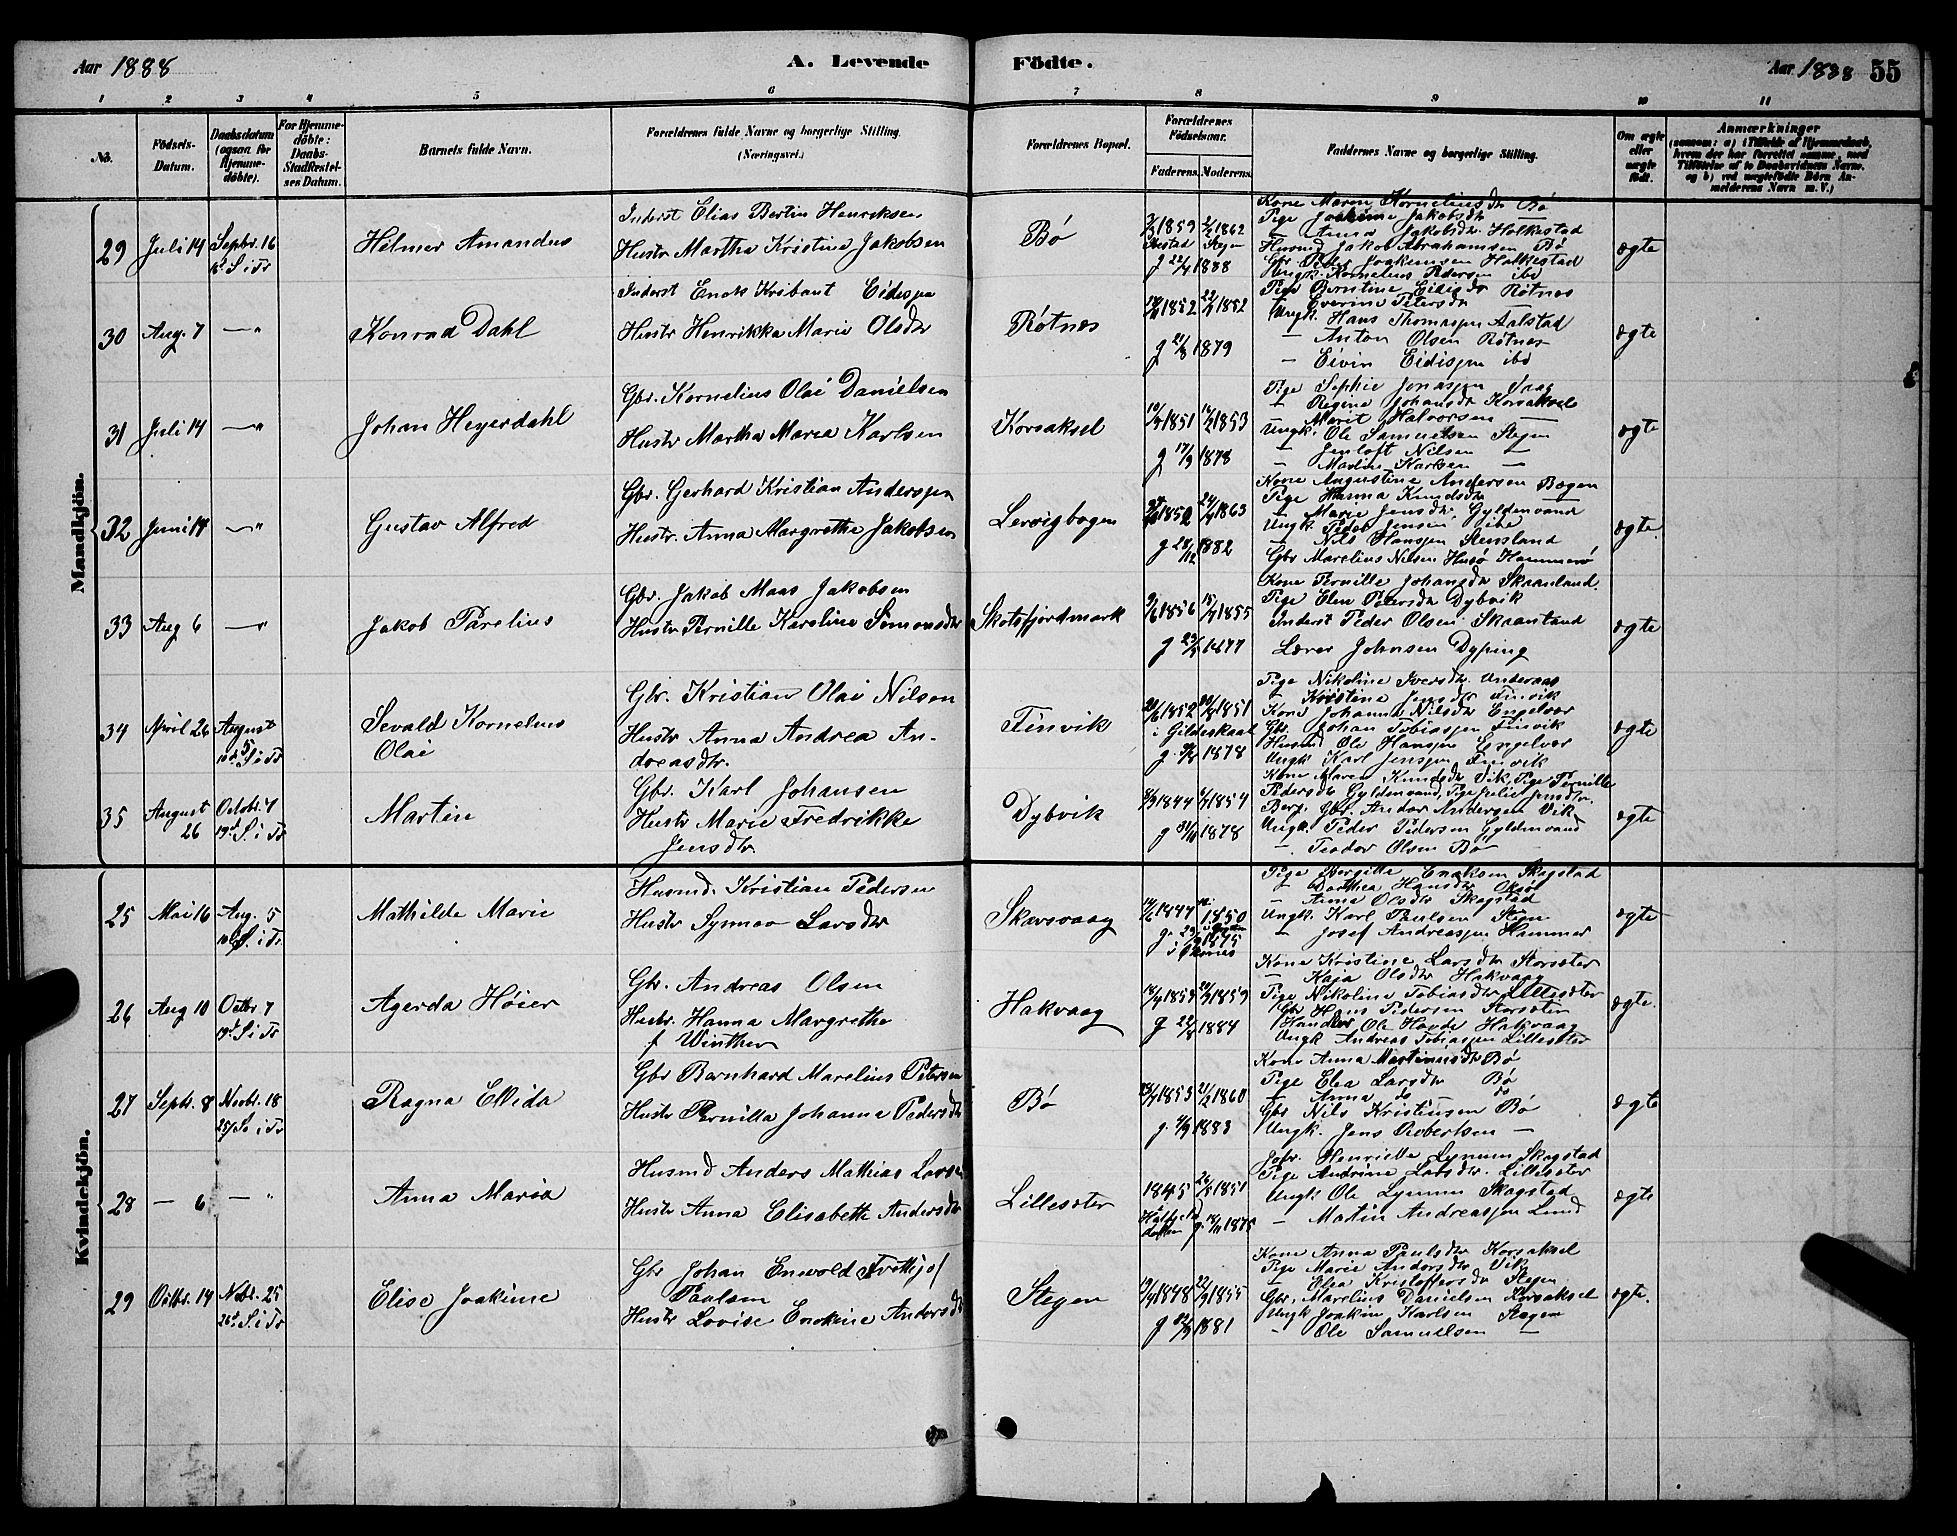 Aar 1888
A. Levende
Födte.
Aar 1888
55
1 2 3 4 5 6 7 8 9 10 11
No.
Födsels-Datum.
Daabsdatum (ogsaa for Hjemme-döbte).
For Hjemme-döbte: Daabs-Stadfæstel-ses Datum.
Barnets fulde Navn.
Forældrenes fulde Navne og borgerlige Stilling. (Næringsvei.)
Forældrenes Bopæl.
Forældrenes Födselsaar.
Faderens. Moderens.
Faddernes Navne og borgerlige Stilling.
Om ægte eller uægte födt.
Anmærkninger
Mandkjön.
29 Juli 14 Septbr. 16
Hilmer Amandus
Inderst Elias Bertin Henriksen
Hustr Martha Kristine Jakobsen
Bø
1859 1862
g 22/4 1888
Kone Maren Korneliusdtr Bø
Pige Joakime Jakobsdtr —
— Anna Jakobsdtr Holkestad
Husmd Jakob Abrahamsen Bø
Gbr. Peder Joakimsen Holkestad
Ungk. Kornelius Pedersen ibd
ægte
30 Aug. 7 — "
Konrad Dahl
Inderst Enok Eidisen
Hustr Henrikke Marie Olsdtr
Røtnes
1852 1852
g 21/8 1879
Pige Berntine Eidisdtr Røtnes
— Everine Petersdtr
Ungk. Hans Thomassen Aalstad
— Anton Olsen Røtnes
— Eivin Eidissen ibd
ægte
31 Juli 14 — "
Johan Heyerdahl
Gbr. Kornelius Olai Danielsen
Hustr Martha Maria Karlsen
Korsaksel
1851 1853
g 17/9 1878
Pige Sophie Jonassen Vaag
— Regine Johansdtr Korsaksel
— Marit Halvorsen —
Ungk. Ole Samuelsen Stegen
— Jentoft Nilsen —
— Karlsen —
ægte
32 Juni 14 — "
Gustav Alfred
Gbr. Gerhard Kristian Andersen
Hustr. Anna Margrethe Jakobsen
Lervigbogen
1850 1863
g 28/12 1882
Kone Augustine Andersen Bogen
Pige Hanna Knudsdtr —
— Marie Jensdtr, Gyldenvand
Ungk. Peder Jensen, ibd
— Nils Hansen Stensland
Gbr Marelius Nilsen Husø Hammerø
ægte.
33 Aug 6 — "
Jakob Parelius
Gbr. Jakob Maas Jakobsen
Hustr Pernille Karoline Simonsdtr
Skotsfjordmark
1856 1855
g 1877
Kone Pernille Johansdtr Skaanland.
Pige Elen Petersdtr Dybvik
Inderst Peder Olsen Skaanland
Lærer Johnsen Dyping
ægte
34 April 26 August 5
Sevald Kornelius Olai
Gbr. Kristian Olai Nilsen
Hustr Anna Andrea An-
dreasdtr.
Finvik
1852 1851
i Gildeskaal
g. 1878
Pige Nikoline Iversdtr Underaas
— Kristine Jensdtr Finvik
Kone Johanna Nilsdtr Engelvær
Gbr. Johan Tobiassen Finvik
Husmd Ole Hansen Engelvær
Ungk Karl Jenssen Finvik
ægte
35 August 26 Octobr. 7
Martin
Gbr. Karl Johansen
Hustr Marie Fredrikke
Jensdtr.
Dybvik
1844 1854
g 1878
Kone Maren Knudsdtr Vik, Pige Pernille
Pedersdtr Gyldenvand, Pige Julie Jensdtr.
Berg. Gbr. Andor Andersen Vik
Ungk. Peder Pedersen Gyldenvand
— Teodor Olsen Bø
ægte
Kvindekjön.
25 Mai 16 Aug. 5
Mathilde Marie
Husmd. Kristian Pedersen
Hustr Synnov Larsdtr
Skarsvaag
1847 1850
g. 1875
Pige Bergitte Enoksen Skogstad
— Dorthea Hansdtr
— Anna Olsdtr Skogstad
Ungk. Karl Paulsen
— Josef Andreassen Hammer
ægte
26 Aug 10 Octbr. 7
Agerda Høier
Gbr. Andreas Olsen
Hustr. Hanna Margrethe
f. Winther
Hakvaag
1853 1859
g 22/8 1884
Kone Kristine Larsdtr Storsæter
— Kaja Olsdtr Hakvaag
Pige Nikoline Tobiasdtr Lillesæter
Gbr Hans Pedersen Storsæter
Handler Ole Hovde Hakvaag
Ungk Andreas Tobiassen Lillesæter
ægte.
27 Septr. 8 Novbr. 18
Ragna Elvida
Gbr Bernhard Marelius Petersen
Hustr Pernilla Johanna Pedersdtr
Bø
1853 1860
g. 1883
Kone Anna Martinusdtr Bø
Pige Elea Larsdtr Bø
— Anna do do
Gbr Nils Kristiansen Bø
Ungk. Jens Robertsen —
ægte
28 — 6 — "
Anna Maria
Husmd Anders Mathias Larsen
Hustr Anna Elisabeth Andersdtr
Lillesæter
1845 1851
g. 1875
Jofr. Henriette Lynum Skogstad
Pige Andrine Larsdtr. Lillesæter
Ungk Ole Lynum Skogstad
— Martin Andreassen Lund
ægte
29 Octbr. 14 Nvbr. 25
Elise Joakime
Gbr Johan Enevold Frettjof
Paulsen
Hustr Lovise Enokine Andersdtr
Stegen
1848 1855
g 1881
Kone Anna Paulsdtr Korsaksel
Pige Marie Andersdtr Vik
— Elea Kristoffersdtr Stegen
Gbr. Marelius Danielsen Korsaksel
Ungk Joakim Karlsen Stegen
— Ole Samuelsen —
ægte.